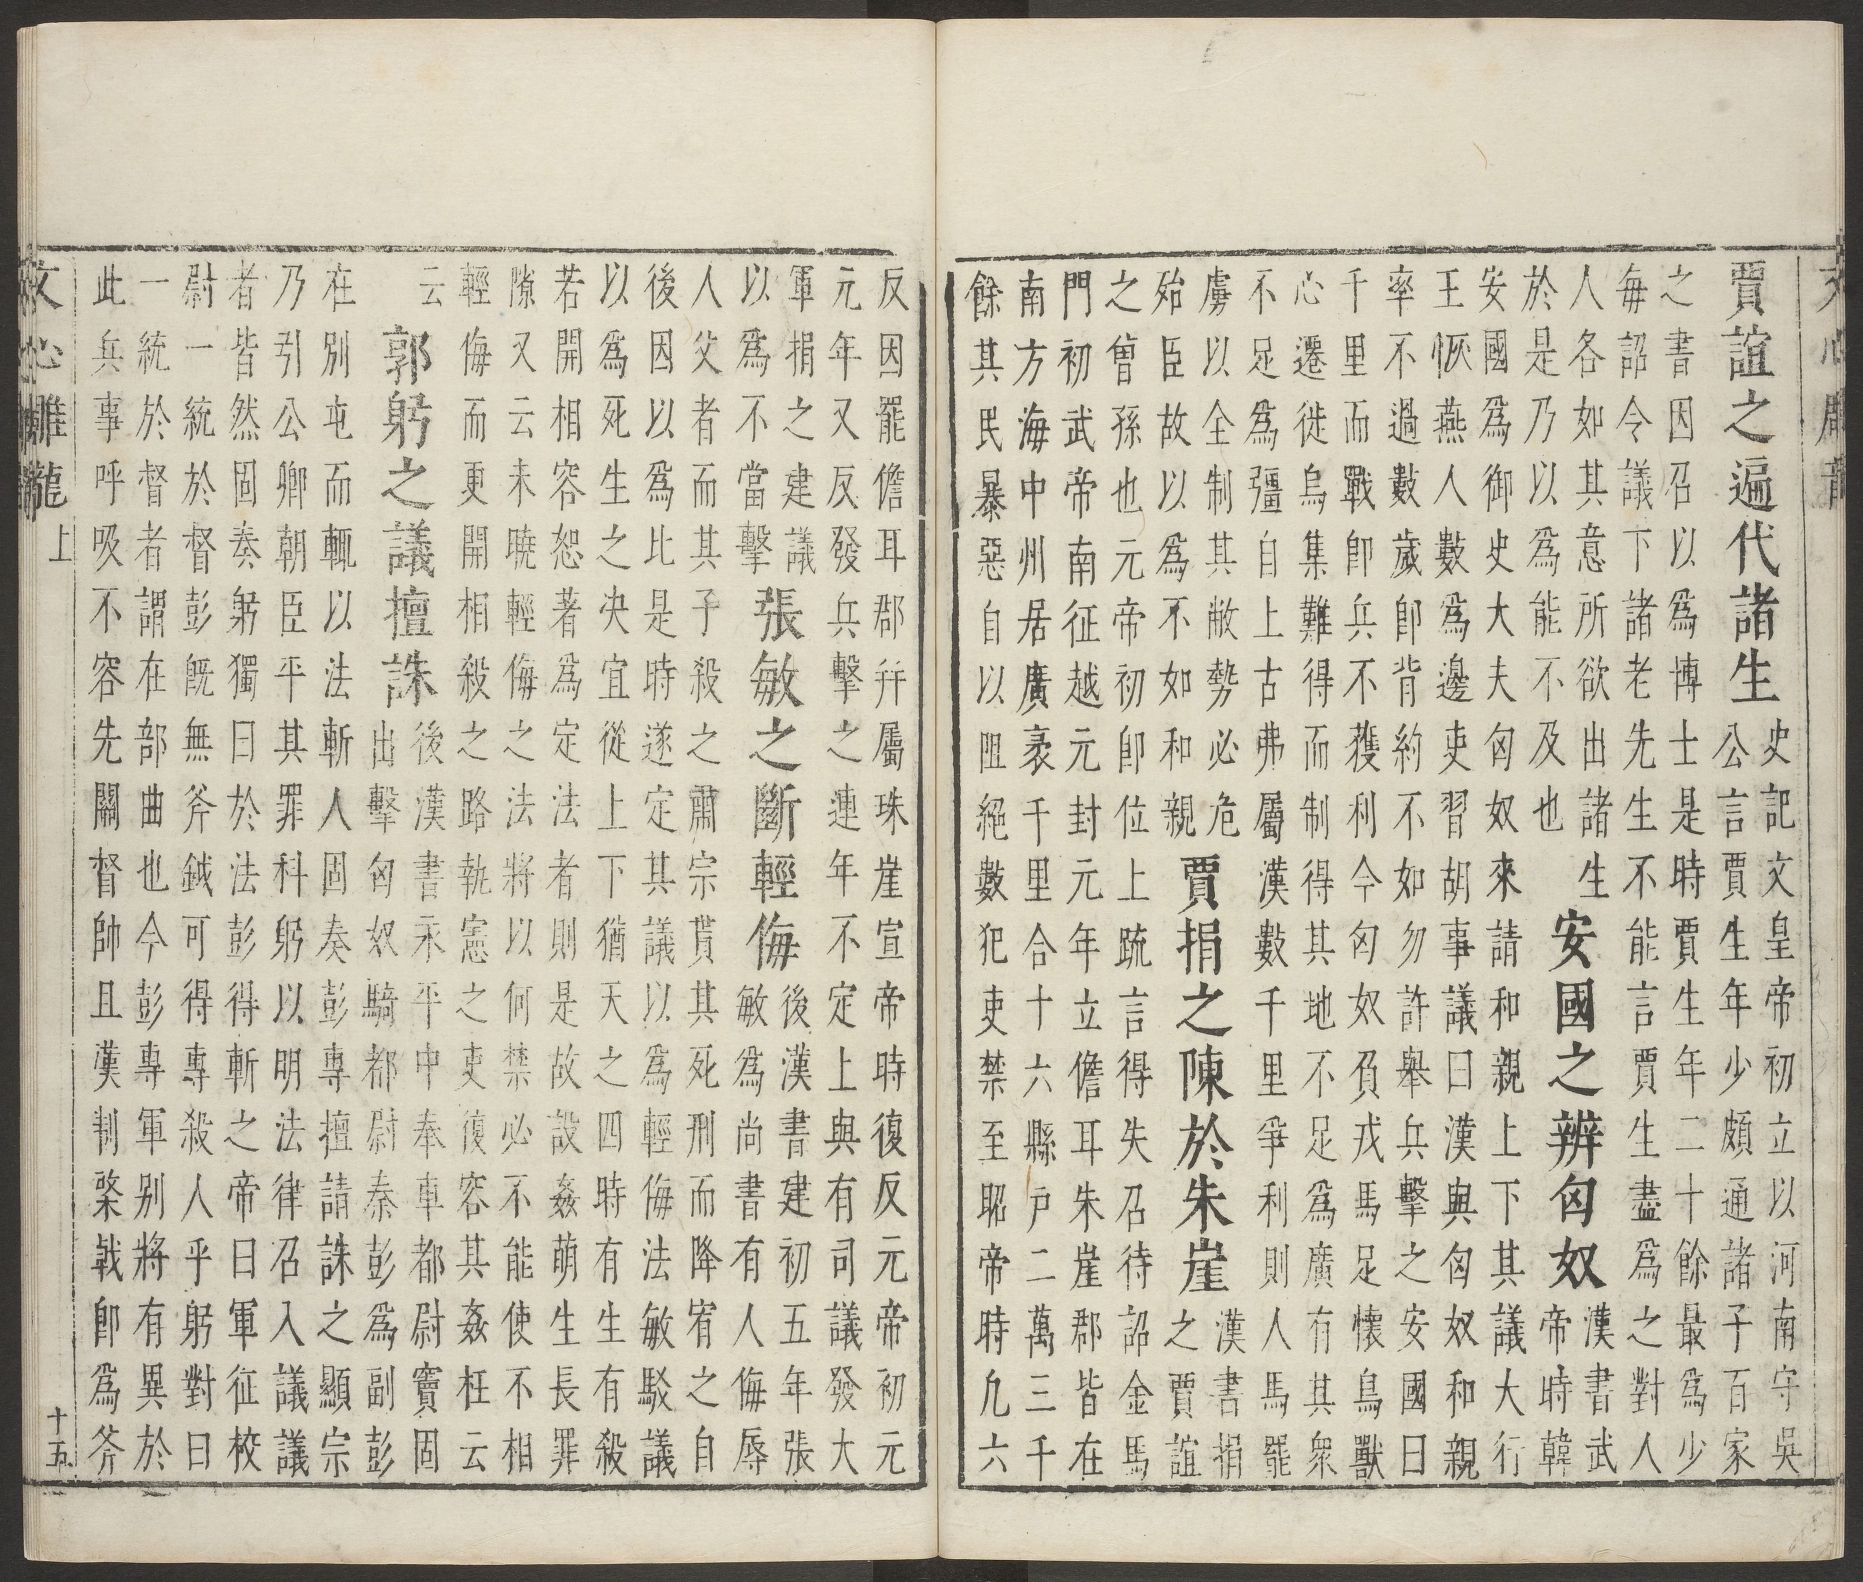 文心雕龍
賈誼之遍代諸生
史記文皇帝初立以河南守吳
公言賈生年少頗通諸子百家
之書因召以為博士是時賈生年二十餘最為少
每詔令議下諸老先生不能言賈生盡為之對人
人各如其意所欲出諸生
於是乃以為能不及也
安國之辨匈奴
漢書武
帝時韓
安國為御史大夫匈奴來請和親上下其議大行
王恢燕人數為邊吏習胡事議曰漢與匈奴和親
率不過數歲即背約不如勿許舉兵擊之安國曰
千里而戰即兵不獲利今匈奴負戎馬足懷鳥獸
心遷徙烏集難得而制得其地不足為廣有其衆
不足為彊自上古弗屬漢數千里爭利則人馬罷
虜以全制其敝勢必危
殆臣故以為不如和親
賈捐之陳於朱崖
漢書捐
之賈誼
之曾孫也元帝初即位上疏言得失召待詔金馬
門初武帝南征越元封元年立儋耳朱崖郡皆在
南方海中州居廣袤千里合十六縣戶二萬三千
餘其民暴惡自以阻絕數犯吏禁至昭帝時凢六
反因罷儋耳郡幷屬珠崖宣帝時復反元帝初元
元年又反發兵擊之連年不定上與有司議發大
軍捐之建議
以為不當擊
張敏之斷輕侮
後漢書建初五年張
敏為尚書有人侮辱
人父者而其子殺之肅宗貰其死刑而降宥之自
後因以為比是時遂定其議以為輕侮法敏駁議
以為死生之決宜從上下猶天之四時有生有殺
若開相容恕著為定法者則是故設姦萌生長罪
隙又云未曉輕侮之法將以何禁必不能使不相
輕侮而更開相殺之路執憲之吏復容其姦枉云
云
郭躬之議擅誅
後漢書永平中奉車都尉竇固
出擊匈奴騎都尉秦彭為副彭
在別屯而輒以法斬人固奏彭專擅請誅之顯宗
乃引公卿朝臣平其罪科躬以明法律召入議議
者皆然固奏躬獨曰於法彭得斬之帝曰軍征校
尉一統於督彭既無斧鉞可得專殺人乎躬對曰
一統於督者謂在部曲也今彭專軍別將有異於
此兵事呼吸不容先關督帥且漢制棨戟即為斧
文心雕龍 上 十五